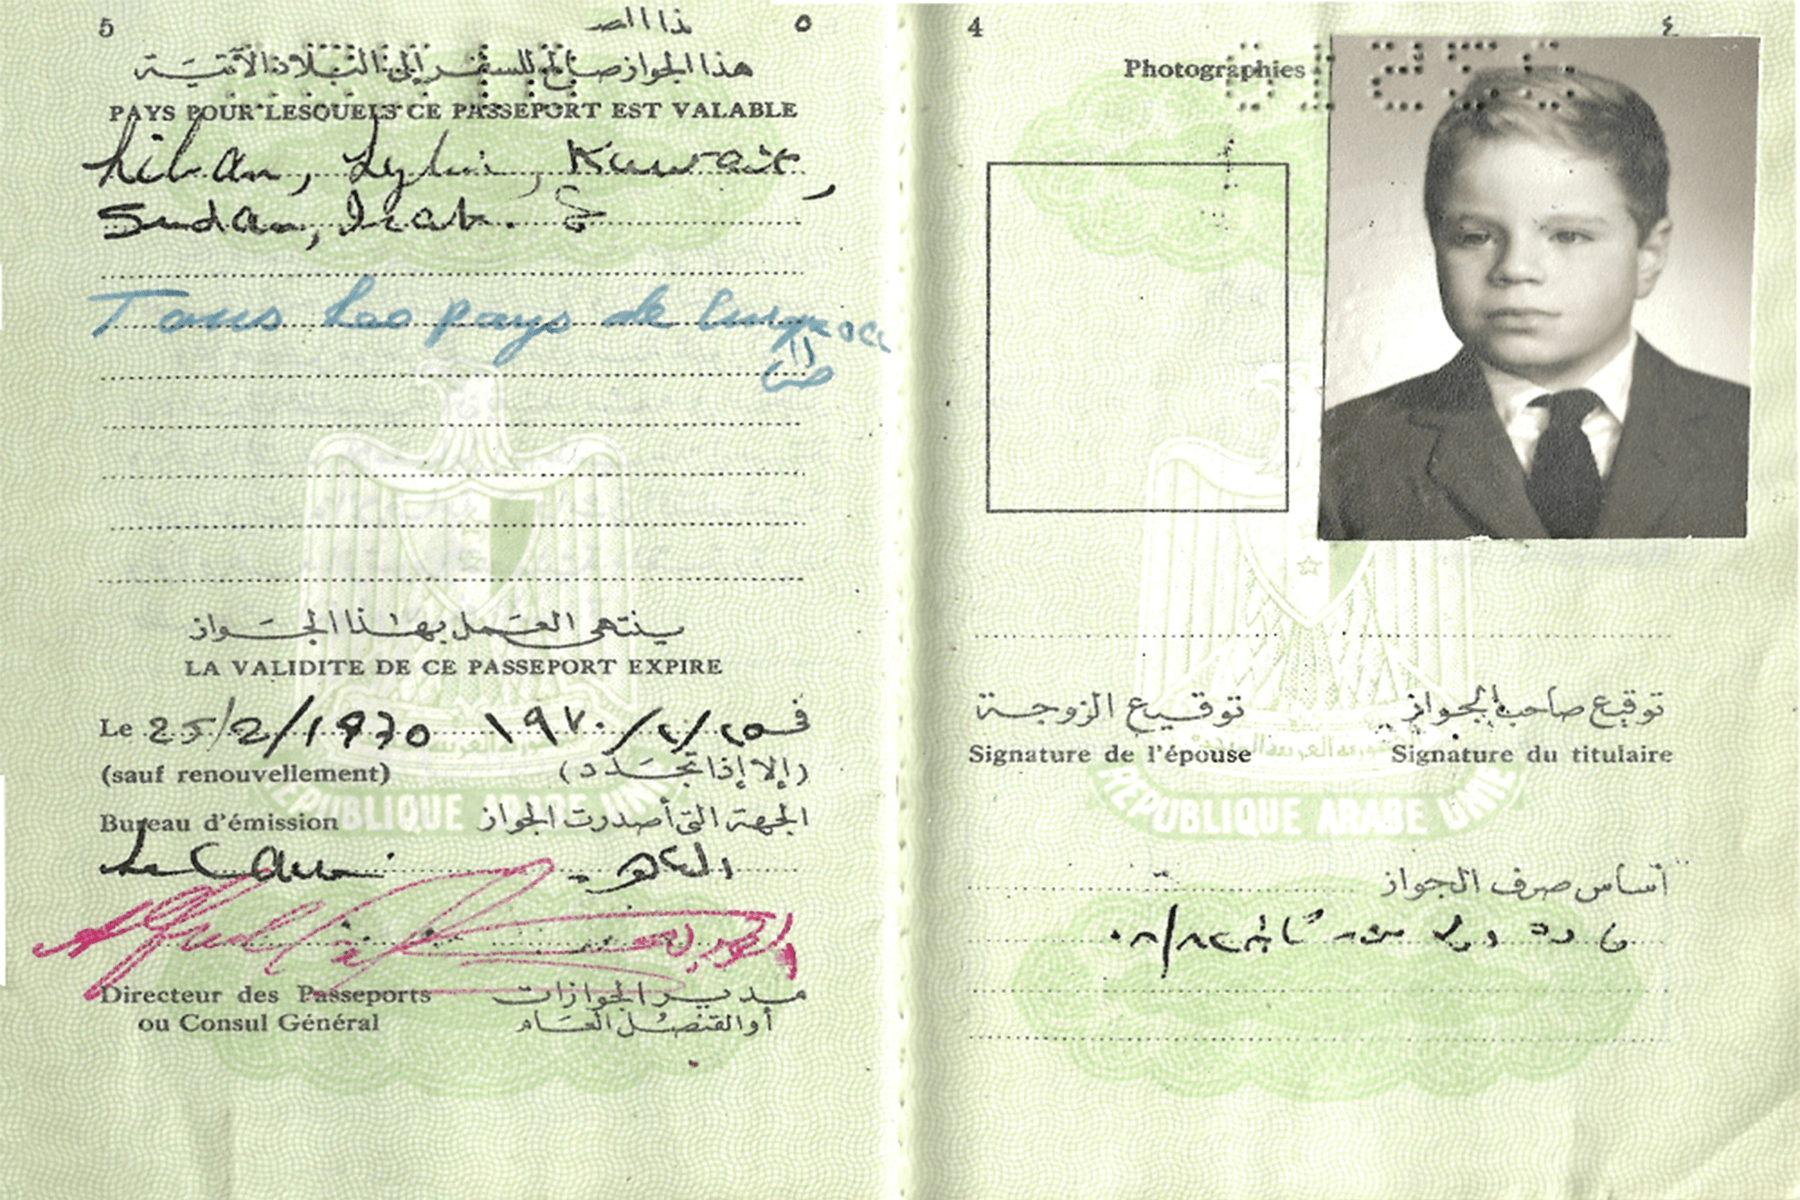 5 ٥
هذا الجواز صالح للسفر إلى البلاد الآتية
PAYS POUR LESQUELS CE PASSEPORT EST VALABLE
Liban, Lybie, Kuwait,
Sudan, Irak.
Tous les pays de
ينتهى العمل بهذا الجواز
LA VALIDITE DE CE PASSEPORT EXPIRE
Le 25/2/1970 فى ٢٥/٢/١٩٧٠
(sauf renouvellement) (إلا إذا تجدد)
Bureau d'émission الجهة التى أصدرت الجواز
Le Caire القاهرة
Directeur des Passeports مدير الجوازات
ou Consul Général أو القنصل العام
REPUBLIQUE ARABE UNIE
4 ٤
Photographies
توقيع الزوجة توقيع صاحب الجواز
Signature de l'épouse Signature du titulaire
REPUBLIQUE ARABE UNIE
أساس صرف الجواز